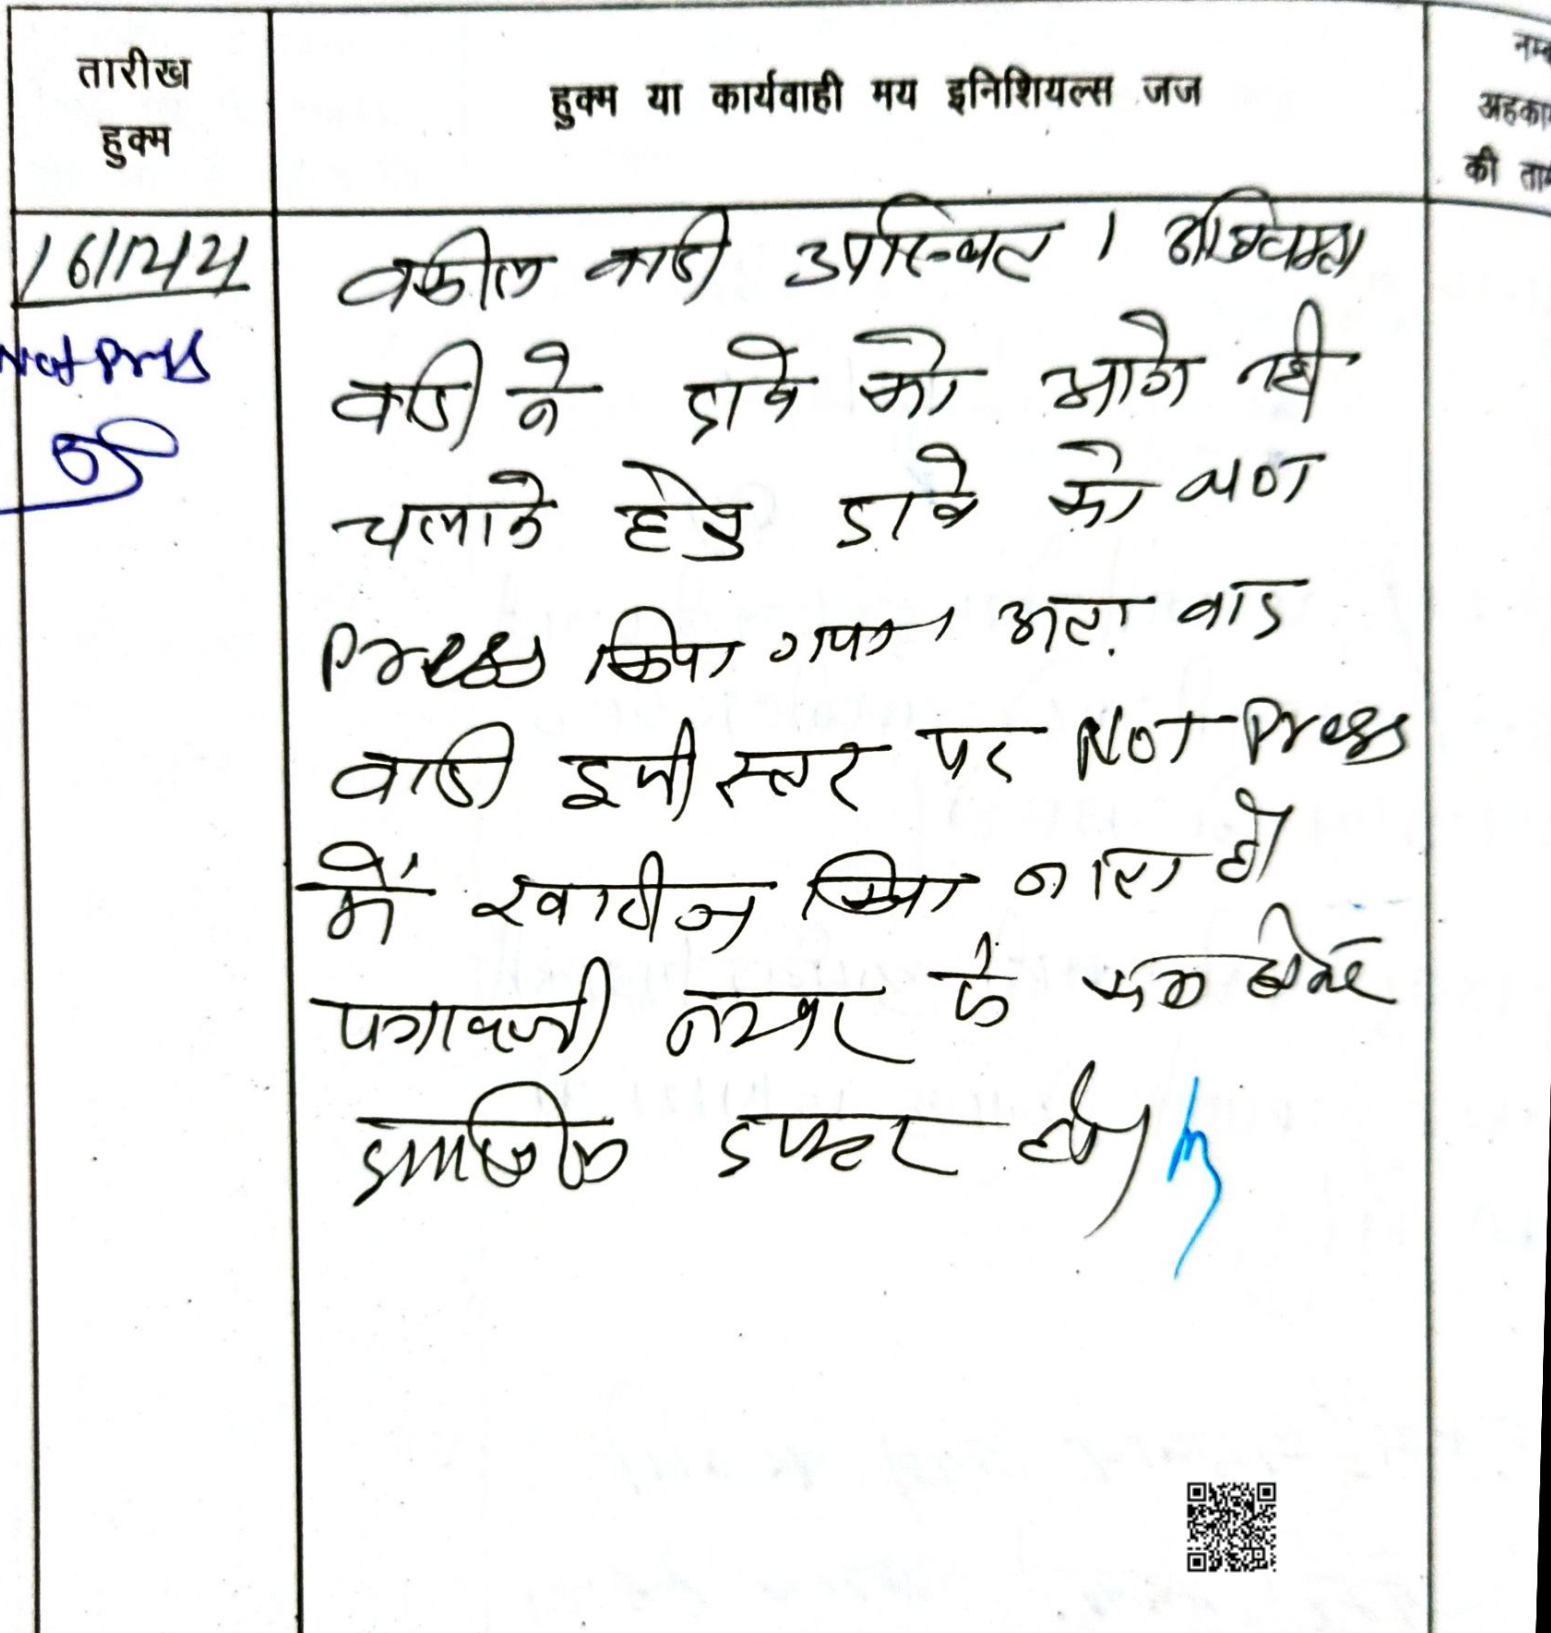 तारीख
हुक्म
हुक्म या कार्यवाही मय इनिशियल्स जज
की
16/12/24
Not Press
वकील वादी उपस्थित । अधिवक्ता
वादी ने दावे को आगे नही
चलाने हेतु दावे को Not
Press किया गया। अतः वाद
वादी इसी स्तर पर Not Press
में खारीज किया जाता है।
पत्रावली नम्बर से कम होकर
दाखिल दफ्तर हो।